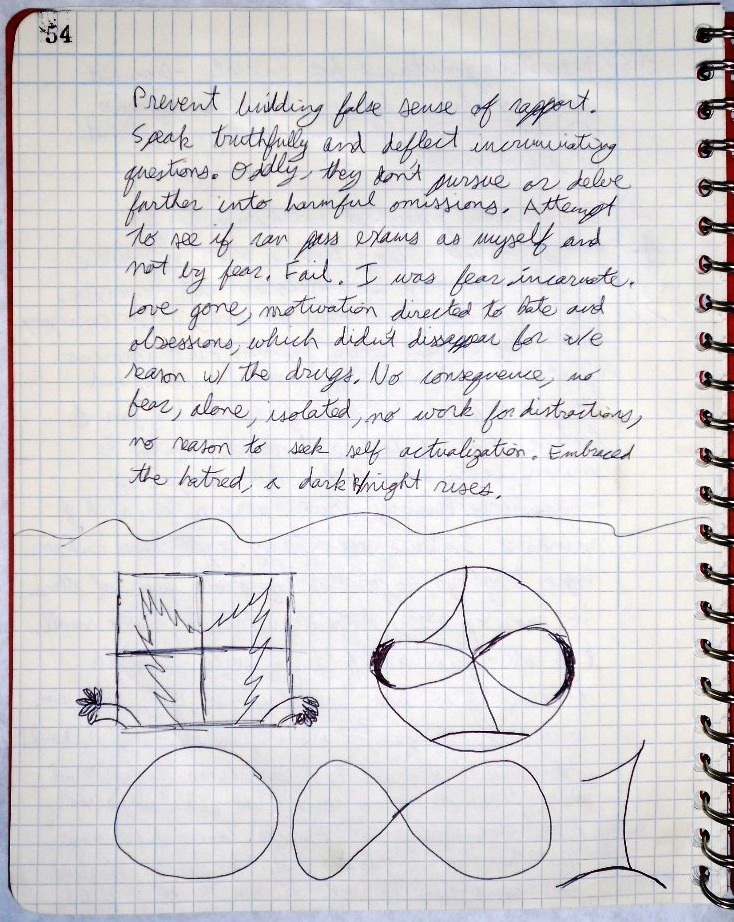 54
Prevent building false sense of rapport.
Speak truthfully and deflect incriminating
questions. Oddly, they don't pursue or delve
farther into harmful omissions. Attempt
to see if can pass exams as myself and
not by fear. Fail. I was fear incarnate.
Love gone, motivation directed to hate and
obsessions, which didn't dissappear for w/e
reason w/ the drugs. No consequence, no
fear, alone, isolated, no work for distractions,
no reason to seek self actualization. Embraced
the hatred, a dark k/night rises.